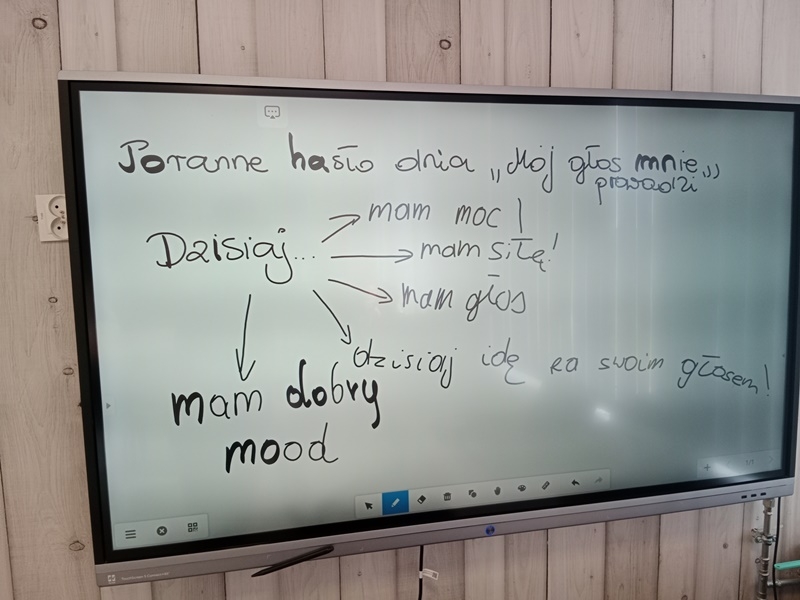 Poranne hasło dnia „Mój głos mnie„
prowadzi
Dzisiaj...
mam moc!
mam siłę!
mam głos
dzisiaj idę za swoim głosem!
mam dobry
mood
1/1